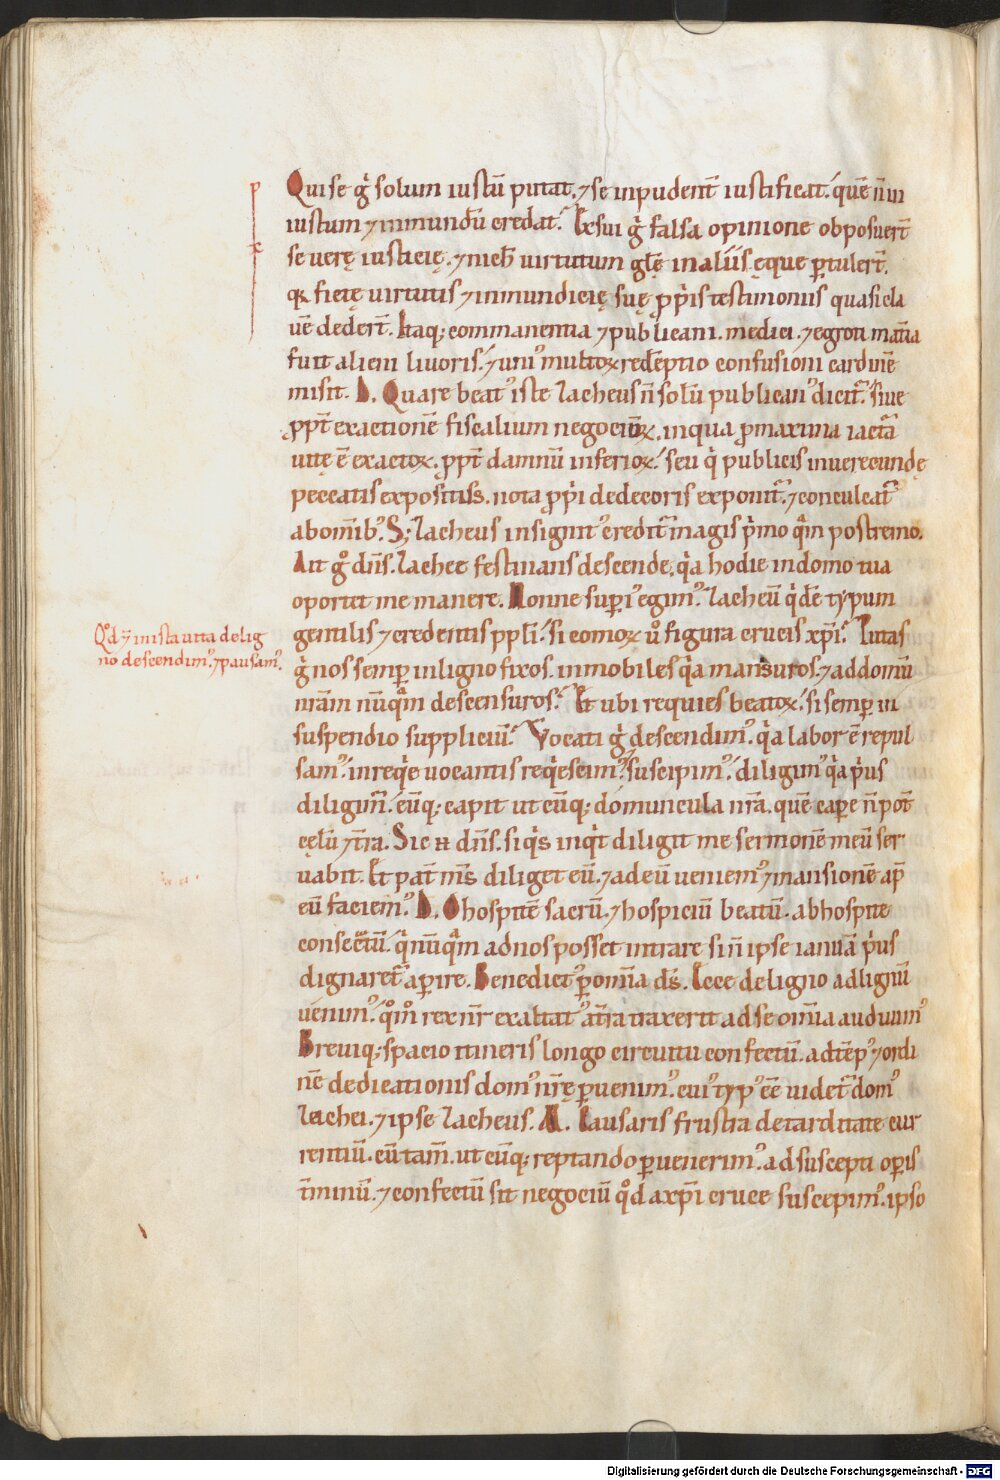 Qui se g̊ solum iustū putat. ⁊ se inpudent̄ iustificat. quē n̄ in
iustum ⁊ inmundū credat? Ex sui g̊ falsa opinione obposuer̄t
se verę iusticię. ⁊ nich̄ virtutum gl̄ę in aliis ęque ꝑtuler̄t.
qꝫ fictę uirtutis ⁊ inmundicię suę ꝓpriis testimoniis quasi cla
uē deder̄t. Itaq; commanentia ⁊ publicani. medici. ⁊ egroti mat̄ia
fuit alieni liuoris. ⁊ uni᾽ multoꝝ redēptio confusioni cardinē
misit. D. Quare beat᾽ iste Zacheus n̄ solū publican᾽ dicit᾽. siue
ꝓpt̄ exactionē fiscalium negocioꝝ. in qua ꝓ maxima iact̄a
uitę ē exactoꝝ. ꝓpt̄ damnū inferioꝝ. seu q̇ publicis inuerecundę
peccatis expositis. nota ꝓprii dedecoris exponit᾽. ⁊ conculcat᾽
abominib᾽. S; Zacheus insignit᾽ credit᾽ magis ṗmo q̄m postremo.
Ait g̊ dn̄s. Zachee festinans descende. q̇a hodie in domo tua
oportet me manere. Nonne superi᾽ egim᾽ Zacheū q̇dē typum
gentilis ⁊ credentis ppl̄i. sicomoꝝ u̇ figura crucis xp̄i? Putas
g̊ nos semꝑ in ligno fixos. inmobiles q̇a mansuros. ⁊ ad domū
Qd̊ ī ista uita de lig
no descendim᾽. ⁊ pausam᾽.
nr̄am nūq̄m descensuros? Et ubi requies beatoꝝ. si semꝑ in
suspendio suppliciū? Vocati g̊ descendim᾽. q̇a labor ē repul
sam᾽. in req̇e uocantis req̇escim᾽. suscipim᾽. diligim᾽ q̇a ṗus
diligim̄. eūq; capit ut cūq; domuncula nr̄a. quē capere n̄ pot̄
cęlū ⁊ t̄ra. Sic &amp; dn̄s. si q̇s inq̇t diligit me sermonē meū ser
uabit. Et pat̄ m̄s diliget eū. ⁊ ad eū ueniem᾽ ⁊ mansionē ap̄
eū faciem᾽. D. O hospitē sacrū. ⁊ hospiciū beatū. ab hospite
consectū. q̇ nūq̄m ad nos posset intrare si n̄ ipse ianuā ṗus
dignaret᾽ aꝑire. Benedict᾽ ꝑ omīa ds̄. Ecce de ligno ad lignū
uenim᾽. qm̊ rex nr̄ exaltat᾽ a t̄ra traxerit ad se omīa audiuim᾽
Breuiq; spacio itineris longo circuitu confectū. ad tēp᾽ ⁊ ordi
nē dedicationis dom᾽ nr̄ę ꝑuenim᾽. cui᾽ typ᾽ eē uidet᾽ dom᾽
Zachei. ⁊ ipse Zacheus. M. Causaris frustra de tarditate cur
rentiū. cū tam̄. ut cūq; reptando ꝑuenerim᾽. ad suscepti oꝑis
t̄minū. ⁊ confectū sit negociū qd̊ a xp̄i cruce suscepim᾽. ipso
Digitalisierung gefördert durch die Deutsche Forschungsgemeinschaft - DFG